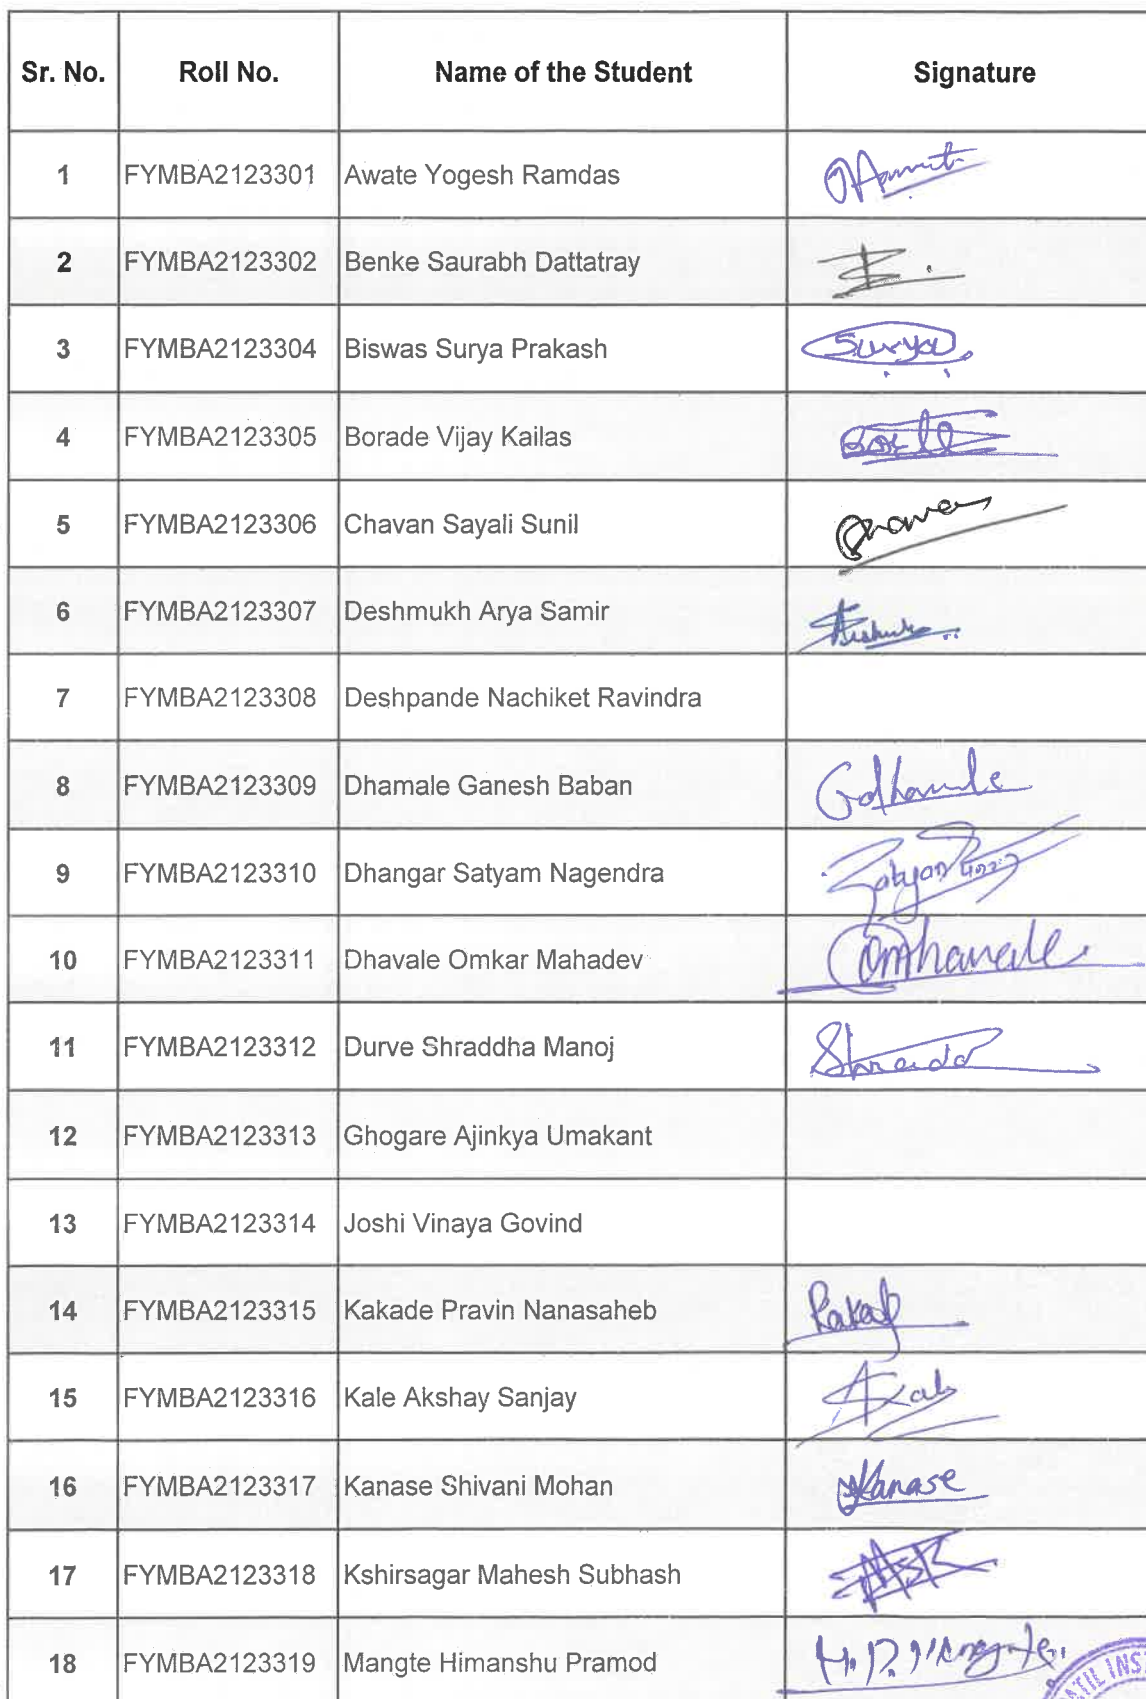 Sr. No. Roll No. Name of the Student Signature
1 FYMBA2123301 Awate Yogesh Ramdas
2 FYMBA2123302 Benke Saurabh Dattatray
3 FYMBA2123304 Biswas Surya Prakash Surya
4 FYMBA2123305 Borade Vijay Kailas
5 FYMBA2123306 Chavan Sayali Sunil
6 FYMBA2123307 Deshmukh Arya Samir
7 FYMBA2123308 Deshpande Nachiket Ravindra
8 FYMBA2123309 Dhamale Ganesh Baban
9 FYMBA2123310 Dhangar Satyam Nagendra
10 FYMBA2123311 Dhavale Omkar Mahadev
11 FYMBA2123312 Durve Shraddha Manoj
12 FYMBA2123313 Ghogare Ajinkya Umakant
13 FYMBA2123314 Joshi Vinaya Govind
14 FYMBA2123315 Kakade Pravin Nanasaheb
15 FYMBA2123316 Kale Akshay Sanjay
16 FYMBA2123317 Kanase Shivani Mohan Kanase
17 FYMBA2123318 Kshirsagar Mahesh Subhash
18 FYMBA2123319 Mangte Himanshu Pramod